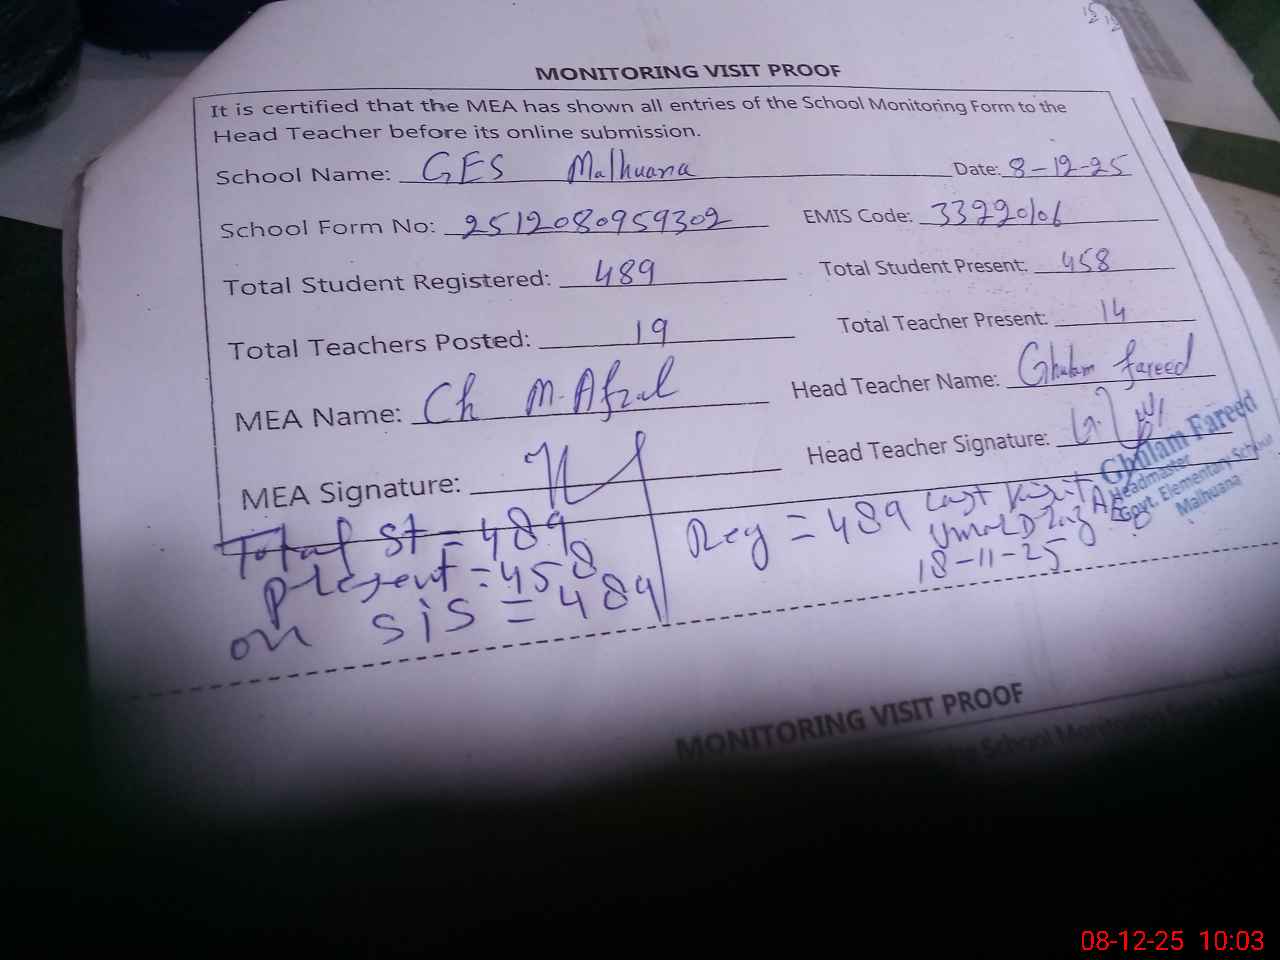 MONITORING VISIT PROOF
It is certified that the MEA has shown all entries of the School Monitoring Form to the
Head Teacher before its online submission.
School Name: GES Malhuana Date: 8-12-25
School Form No: 2512080959302 EMIS Code: 33220106
Total Student Registered: 489 Total Student Present: 458
Total Teachers Posted: 19 Total Teacher Present: 14
MEA Name: Ch M. Afzal Head Teacher Name: Ghulam fareed
MEA Signature: Head Teacher Signature:
Ghulam Fareed
Headmaster
Govt. Elementary School
Malhuana
Total st = 489
present = 458
on sis = 489
Reg = 489 Last Visit
18-11-25
MONITORING VISIT PROOF
the School Monitoring
08-12-25 10:03